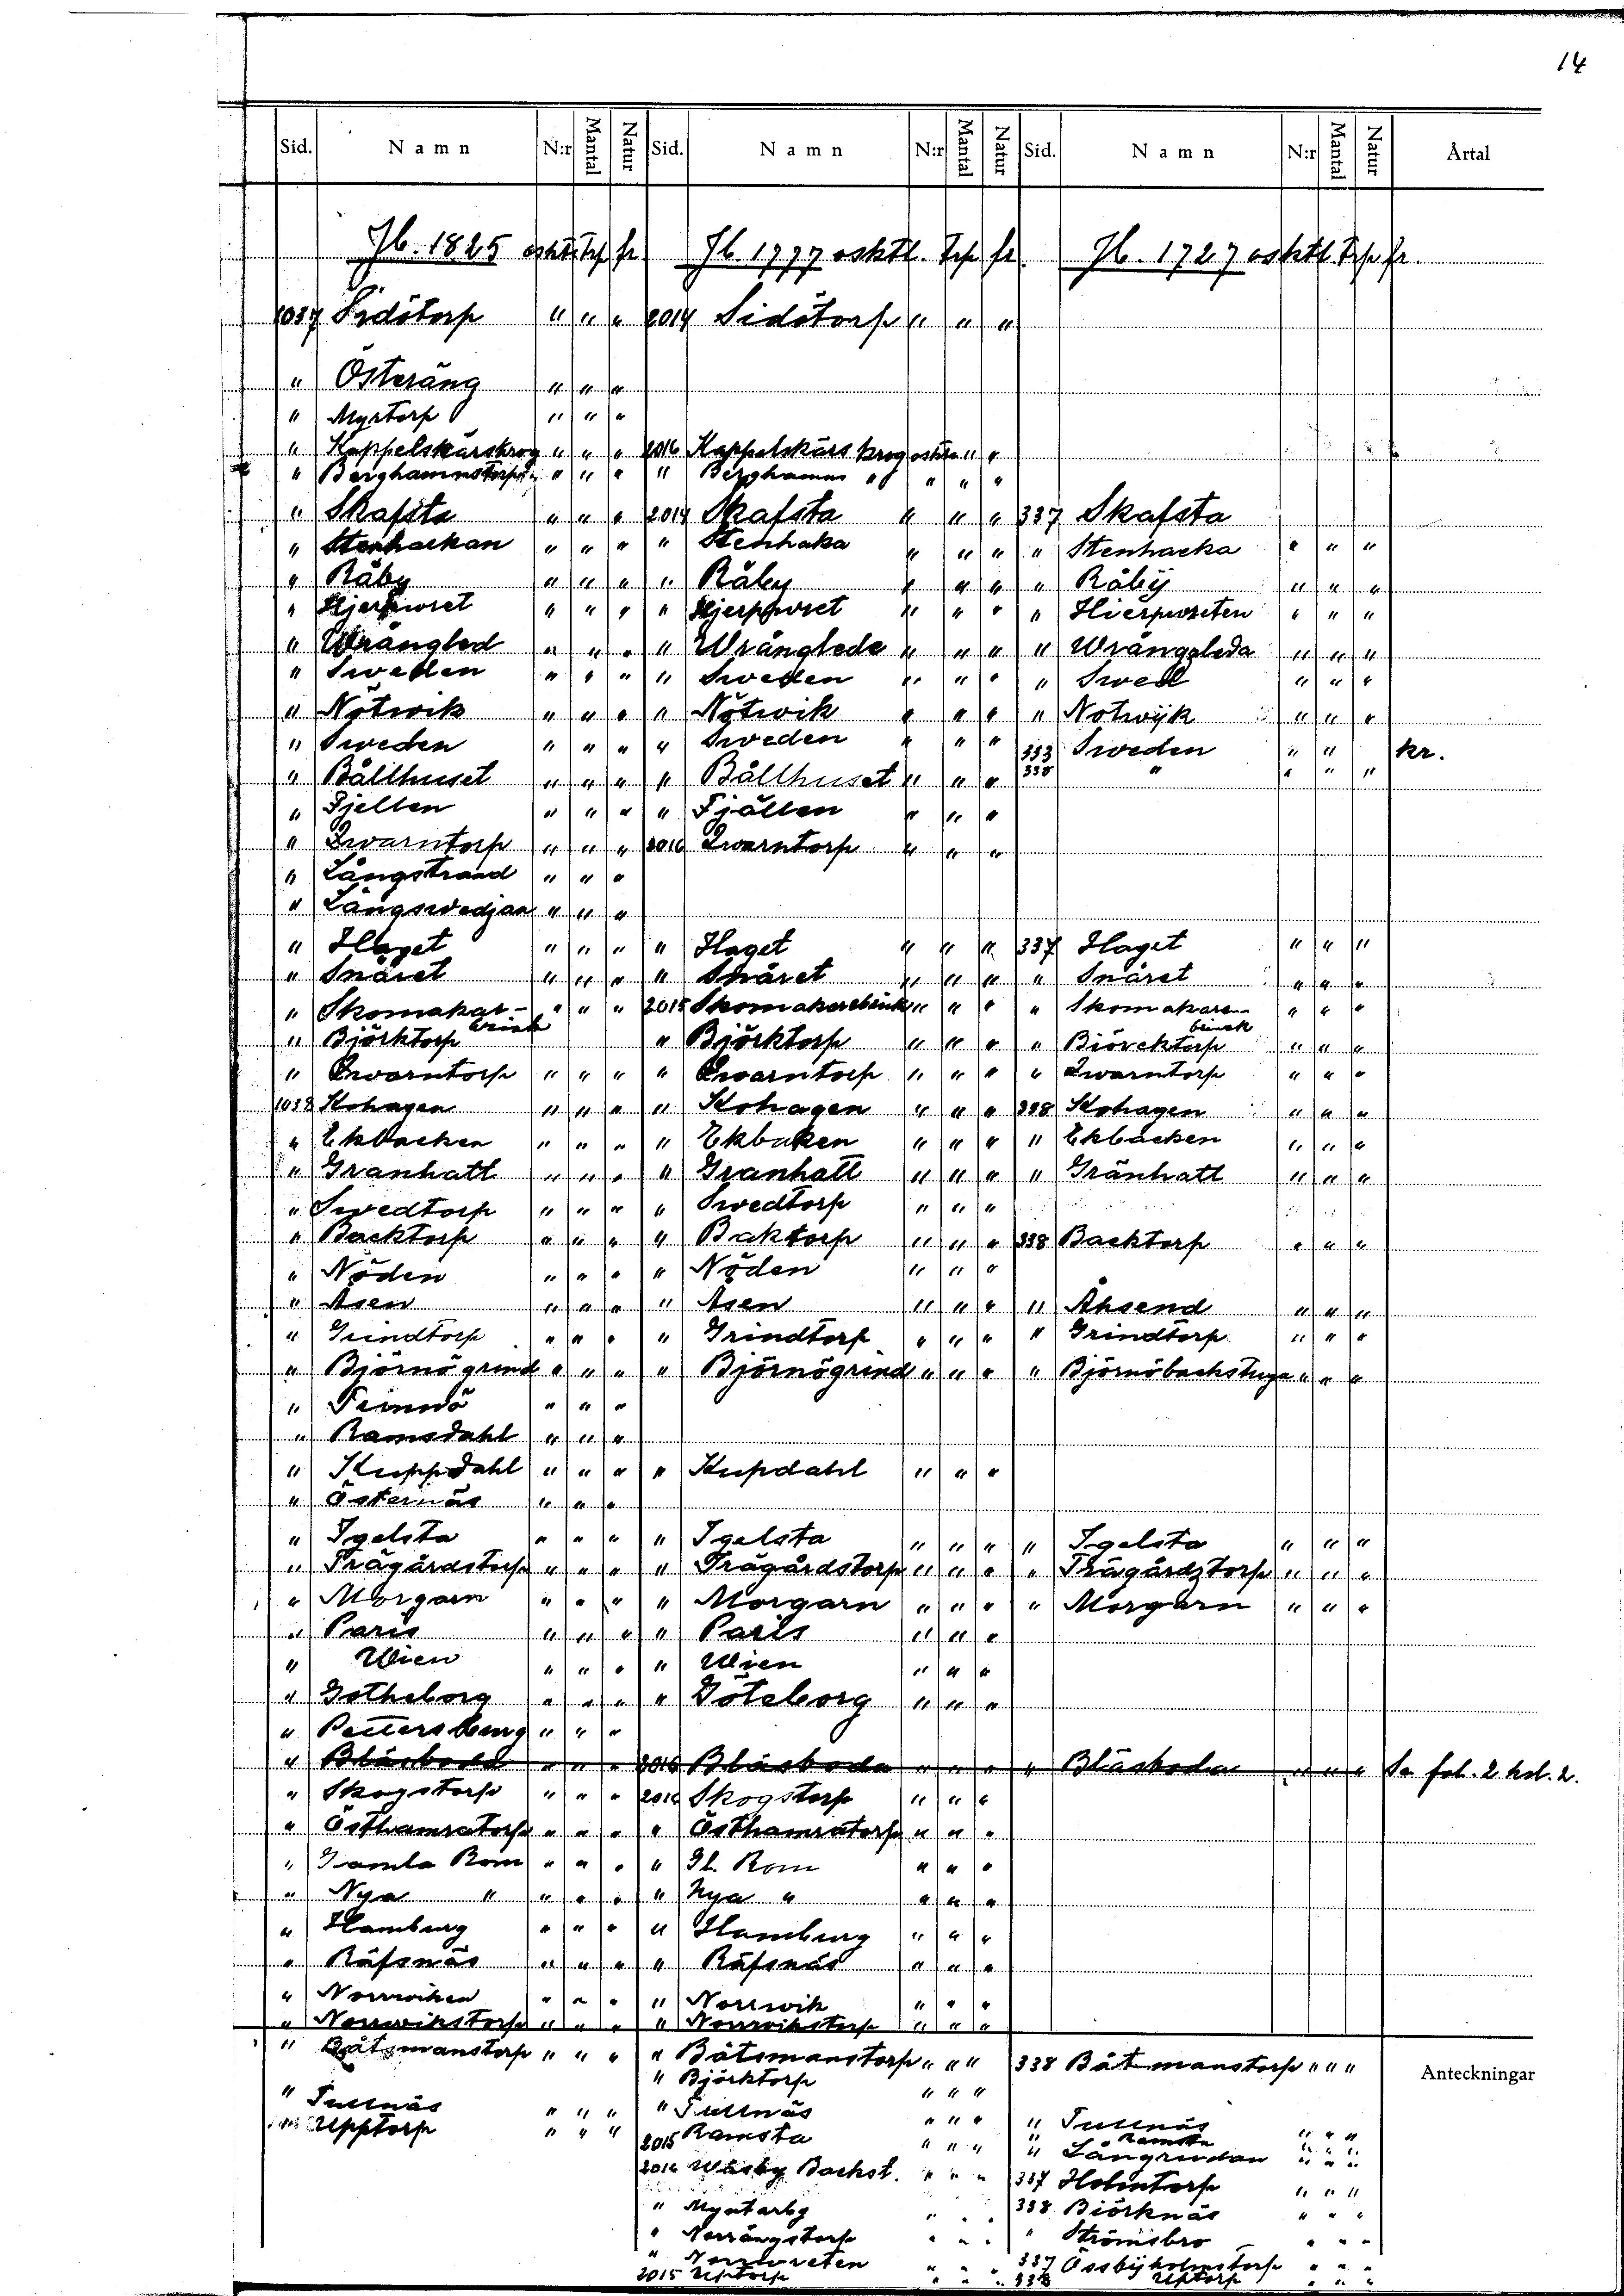 14
Sid. Namn N:r Mantal Natur Sid. Namn N:r Mantal Natur Sid. Namn N:r Mantal Natur Årtal
Jb. 1825 osktl. trp fr. Jb 1777 osktl. trp fr. Jb. 1727 osktl. trp. fr.
1037 Sidötorp " " " 2014 Sidötorp " " "
" Österäng " " "
" Myrtorp " " "
" Kappelskärskrog " " " 2016 Kappelskärs krog osktn " "
" Berghamnstorp " " " " Berghamns " " " "
" Skafsta " " " 2014 Skafsta " " " 337 Skafsta
" Stenhackan " " " " Stenhaka " " " " Stenhacka " " "
" Råby " " " " Råby " " " " Råbÿ " " "
" Hjerpwret " " " " Hjerpwret " " " " Hierpwreten " " "
" Wrångled " " " " Wrånglede " " " " Wrånggleda " " "
" Sweden " " " " Sweden " " " " Swed " " "
" Nötwik " " " " Nötwik " " " " Notwÿk " " "
" Sweden " " " " Sweden " " " 333 Sweden " " kr.
" Bållhuset " " " " Bållhuset " " " 338 " " " "
" Fjellen " " " " Fjällen " " "
" Qwarntorp " " " 2016 Qwarntorp " " "
" Långstrand " " "
" Långswedjan " " "
" Haget " " " " Haget " " " 337 Haget " " "
" Snåret " " " " Snåret " " " " Snåret " " "
" Skomakar- " " " 2015 Skomakarebrink " " " " Skomakare- " " "
brink brinck
" Björktorp " Björktorp " " " " Biörcktorp " " "
" Qwarntorp " " " " Qwarntorp " " " " Qwarntorp " " "
1038 Kohagen " " " " Kohagen " " " 338 Kohagen " " "
" Ekbacken " " " " Ekbaken " " " " Ekbacken " " "
" Granhatt " " " " Granhatt " " " " Gränhatt " " "
" Swedtorp " " " " Swedtorp " " "
" Backtorp " " " " Baktorp " " " 338 Backtorp " " "
" Nöden " " " " Nöden " " "
" Åsen " " " " Åsen " " " " Åhsend " " "
" Grindtorp " " " " Grindtorp " " " " Grindtorp " " "
" Björnögrind " " " " Björnögrind " " " " Björnöbackstuga " " "
" Finnwö " " "
" Ramsdahl " " "
" Kuppdahl " " " " Kupdahl " " "
" Östernäs " " "
" Igelsta " " " " Igelsta " " " " Igelsta " " "
" Trägårdstorp " " " " Trägårdstorp " " " " Trägårdztorp " " "
" Morgarn " " " " Morgarn " " " " Morgarn " " "
" Paris " " " " Paris " " "
" Wien " " " " Wien " " "
" Götheborg " " " " Göteborg " " "
" Pettersburg " " "
" Blåsbord " " " 2016 Blåsboda " " " " Blåsboda " " " Se fol. 2 kol. 2.
" Skogstorp " " " 2016 Skogstorp " " "
" Östhamratorp " " " " Östhamratorp " " "
" Gamla Rom " " " " Gl. Rom " " "
" Nya " " " " " Nya " " " "
" Hamburg " " " " Hamburg " " "
" Räfsnäs " " " " Räfsnäs " " "
" Norrwiken " " " " Norrwik " " "
" Norrwikstorp " " " " Norrwikstorp " " "
" Båtsmanstorp " " " " Båtsmanstorp " " " 338 Båtmanstorp " " "
Anteckningar
" Björktorp " " "
" Tullnäs " " " " Tullnäs " " " " Tullnäs " " "
" Upptorp " " " 2015 Ramsta " " " " Ramsta " " "
" Långrudan " " "
2016 Wäsby Backst. " " " 337 Holmtorp " " "
" Myntarbg " " " 338 Biörknäs " " "
" Norrängstorp " " " " Strömsbro " " "
" Norrwreten " " " 337 Össbÿholmstorp " " "
2015 Uptorp " " " 338 Uptorp " " "